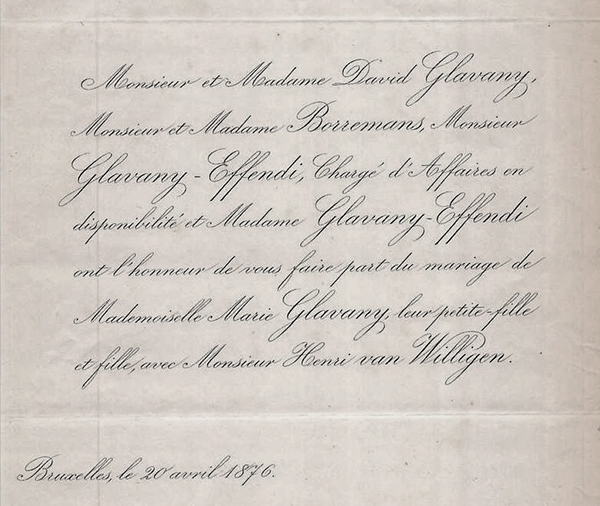 Monsieur et Madame David Glavany,
Monsieur et Madame Borremans, Monsieur
Glavany-Effendi, Chargé d'Affaires en
disponibilité et Madame Glavany-Effendi
ont l'honneur de vous faire part du mariage de
Mademoiselle Marie Glavany, leur petite-fille
et fille, avec Monsieur Henri van Willigen.
Bruxelles, le 20 avril 1876.